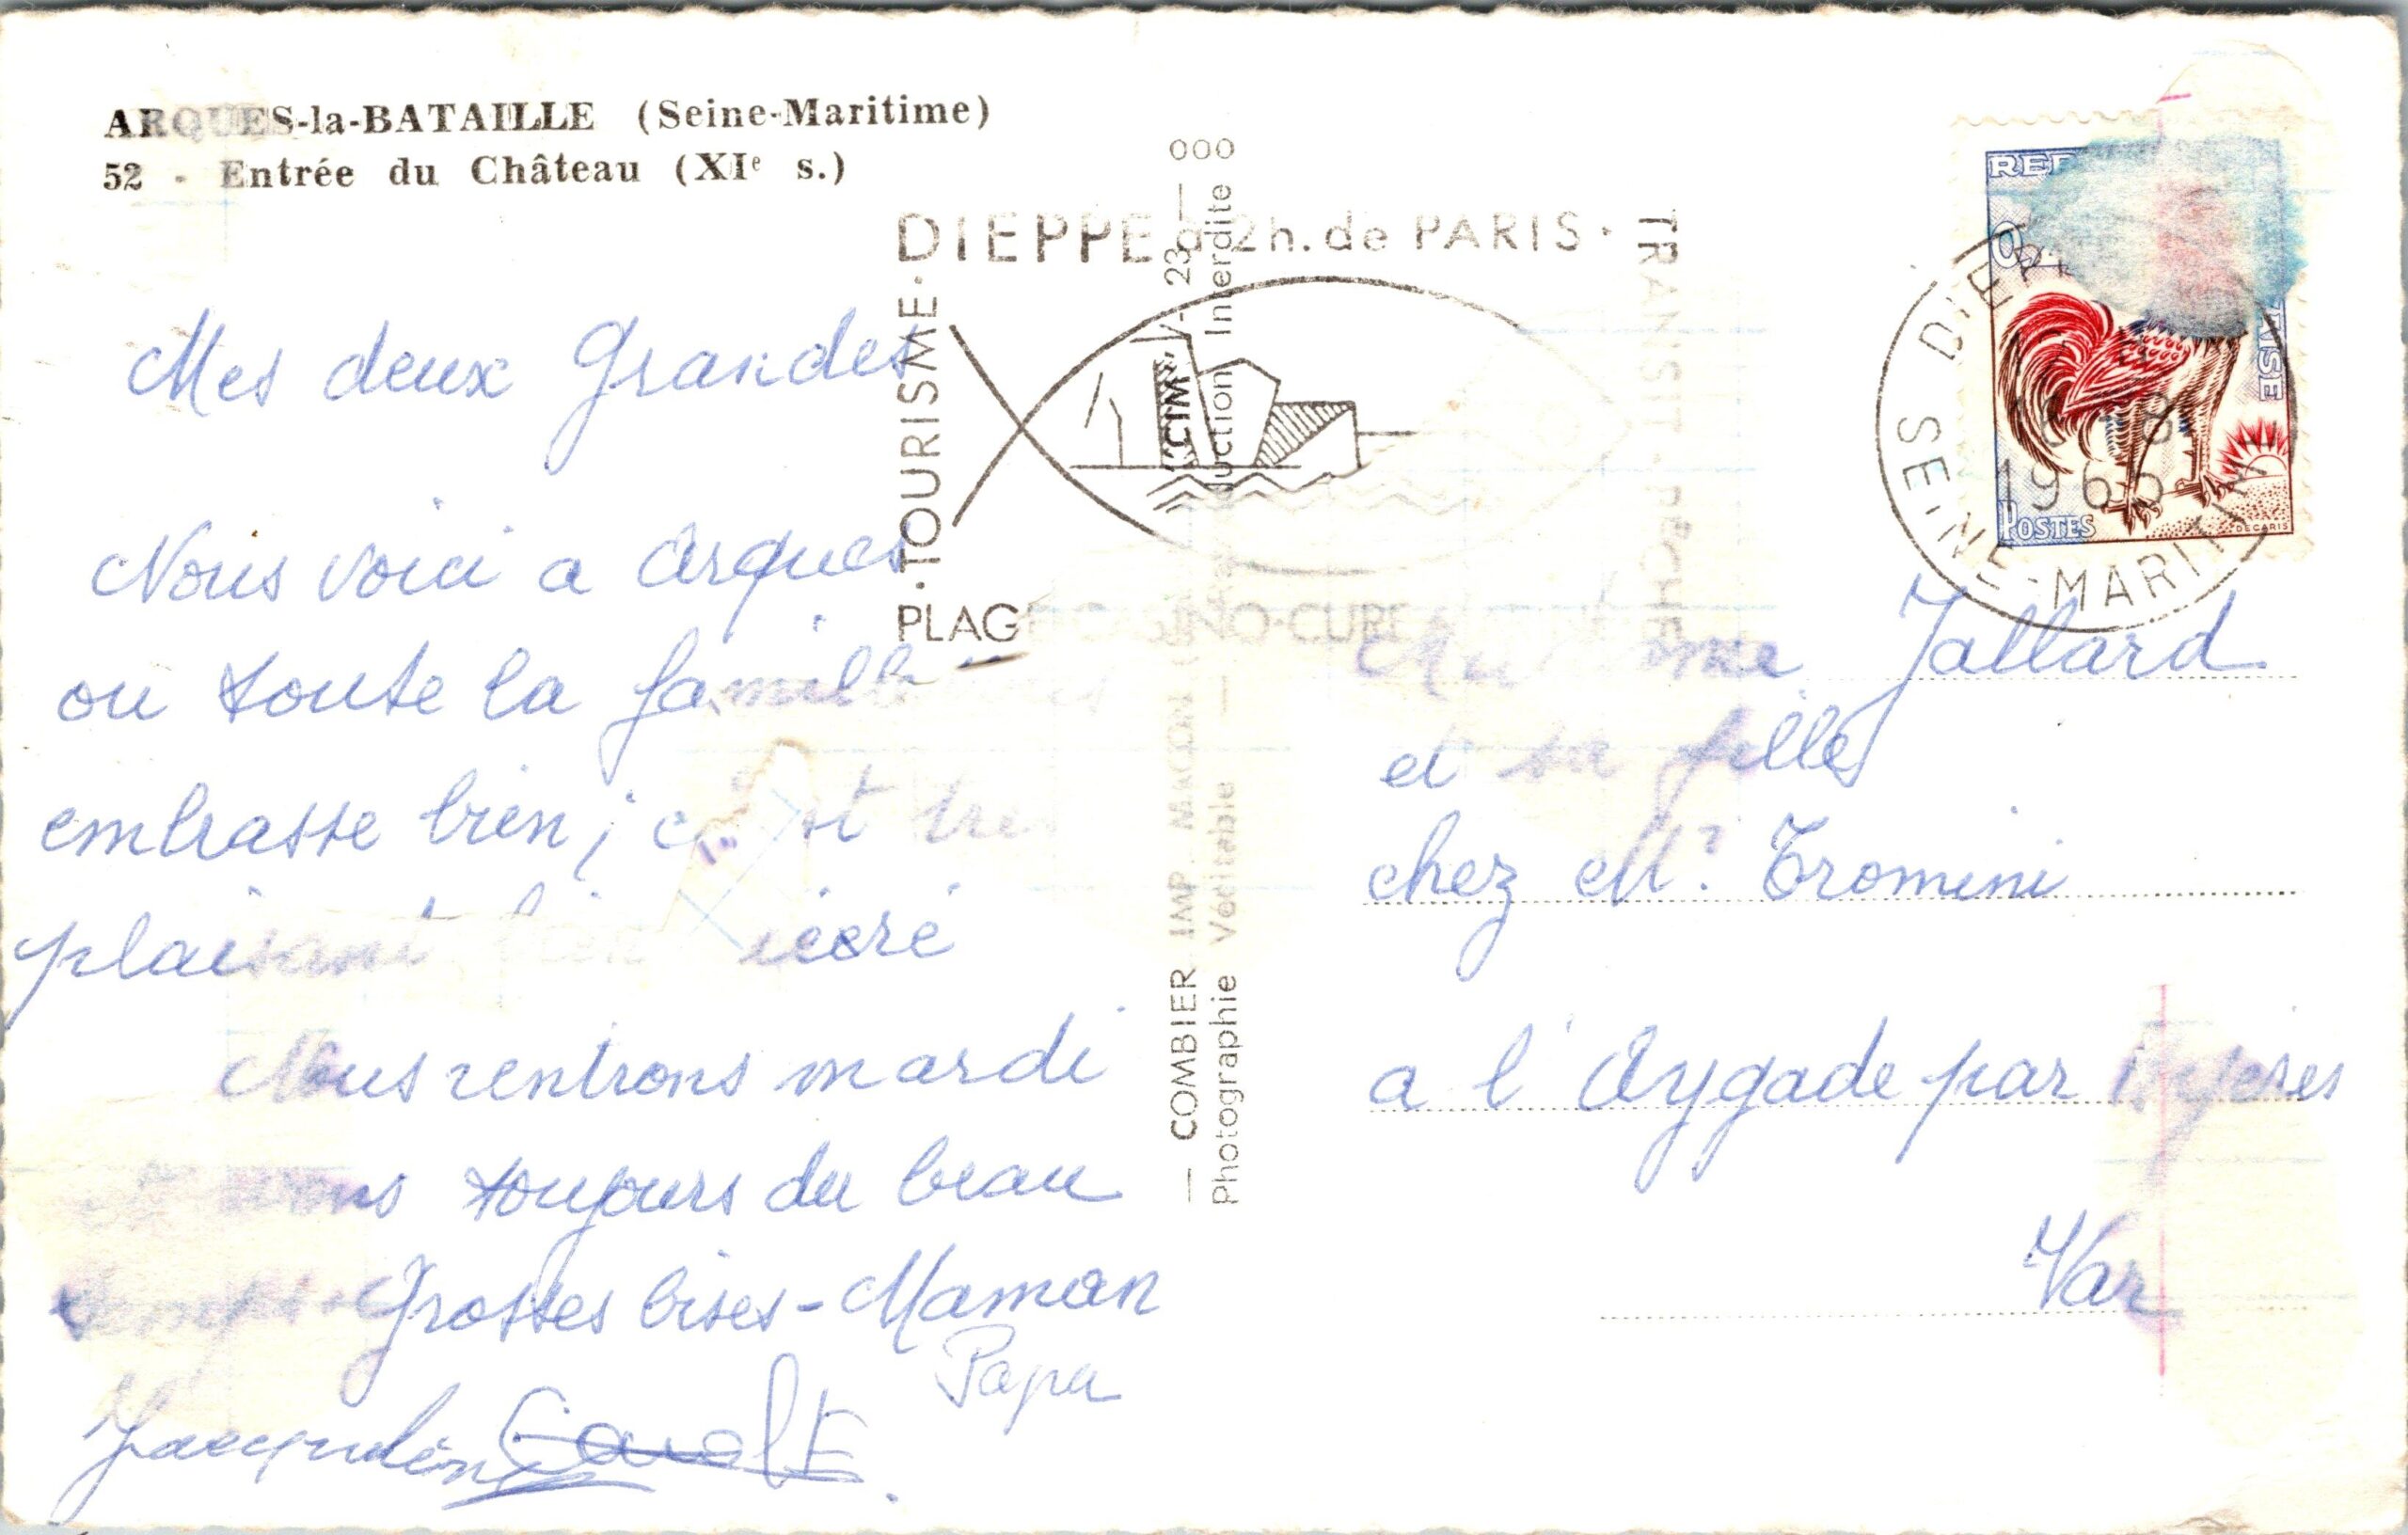 ARQUES-la-BATAILLE (Seine-Maritime)
52 - Entrée du Château (XIe s.)
000
DIEPPE à 2h. de PARIS.
.TOURISME.
TRANSIT. PÊCHE
PLAGE CASINO-CURE
CIM
— COMBIER IMP. MACON
23 —
Photographie Véritable —
Interdite
REP
0,2
AISE
POSTES
DECARIS
DIEPPE
-8
1965
SEINE-MARITIME
Mes deux Grandes
Nous voici a Arques
ou toute la famille
embrasse bien ; c'est tres
plaisant,
Nous rentrons mardi
avons toujours du beau
temps. Grosses bises - Maman
Papa
Jacqueline Carole
Madame Jallard
et sa fille
chez Mr. Tromini
a l'Aygade par Hyeres
Var